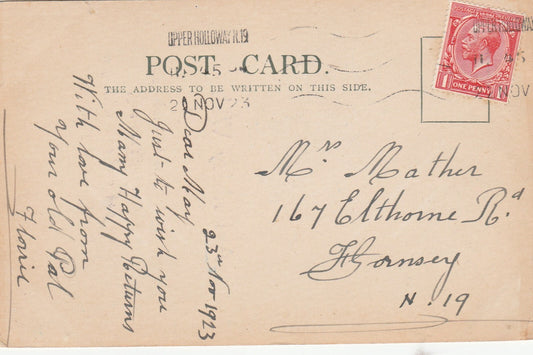 UPPER HOLLOWAY N.19
POST CARD.
THE ADDRESS TO BE WRITTEN ON THIS SIDE.
NOV 23
POSTAGE
ONE PENNY
UPPER HOLLOWAY
NOV
23rd Nov 1923
Dear May
Just to wish you
Many Happy Returns
With love from
your old Pal
Florrie
Mrs Mather
167 Elthorne Rd
Hornsey
N. 19